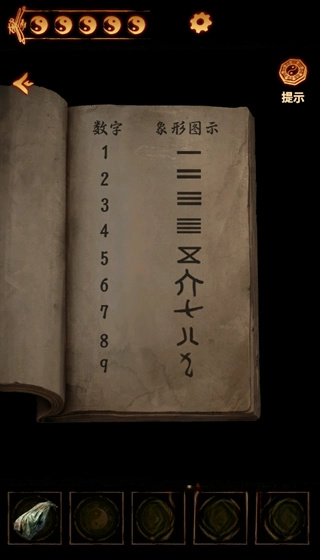 提示
数字 象形图示
1 一
2 二
3 三
4 亖
5
6 介
7 七
8 八
9